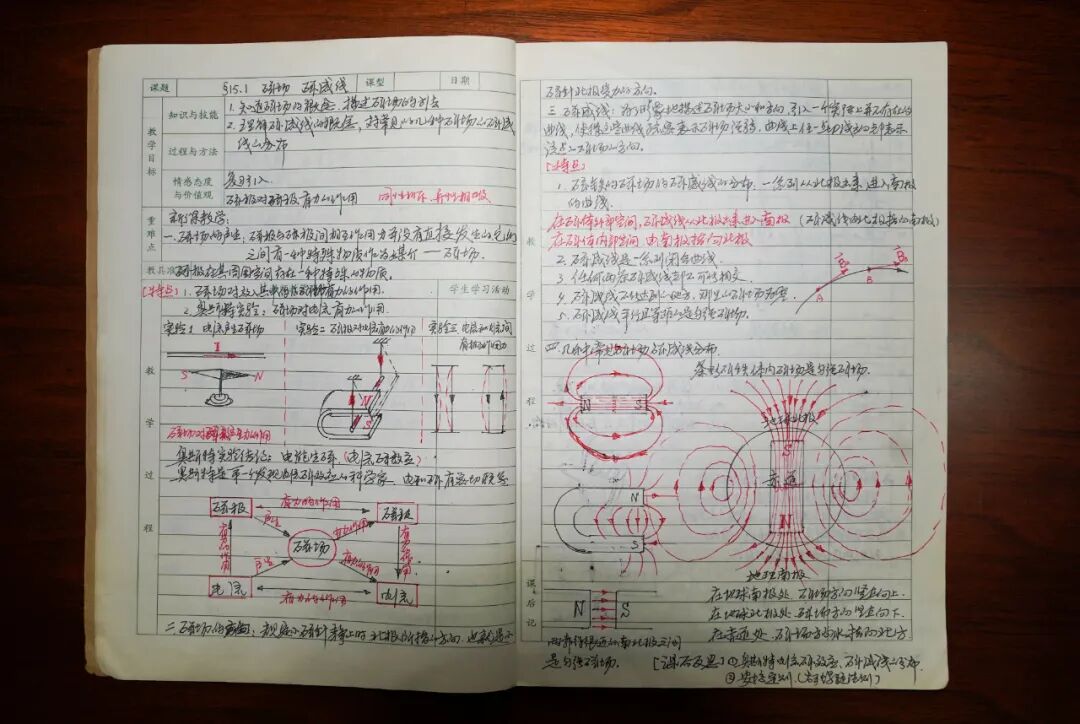 课题 §15.1 磁场 磁感线 课型 日期
教学目标
知识与技能
1. 知道磁场的概念,描述磁场的方法
2. 理解磁感线的概念,对常见的几种磁场的磁感
线的分布
过程与方法
情感态度与价值观
复习引入
磁极对磁极有力的作用 同性相斥、异性相吸
重难点
新课教学:
一、磁场的产生:磁极与磁极间相互作用力并没有直接发生的,它们
之间有一种特殊物质作为媒介——磁场.
教具准备
磁极在其周围空间存在一种特殊的物质.
[特点] 1. 磁场对放入其中的 有力的作用. 学生学习活动
2. 奥斯特实验:磁场对电流有力的作用.
实验1 电流产生磁场 实验二 磁极对电流有力的作用 实验三 电流和电流间
有相互作用力
I
S N
N
S
磁场对 力的作用
奥斯特实验结论:电能生磁.(电流磁效应)
奥斯特是第一个发现电流磁效应的科学家. 电和磁有密切联系
教学过程
磁极 有力的作用 磁极
产生 有力的作用
有力的作用 磁场 有力的作用
产生 有力的作用
电流 有力的作用 电流
二、磁场的方向:规定小磁针静止时北极所指的方向,也就是小
磁针北极受力的方向.
三、磁感线:为了形象地描述磁场大小和方向,引入一个实际上并不存在的
曲线,使得这些曲线疏密表示磁场强弱,曲线上任一点切线方向表示
该点的磁场的方向.
[特点]
1. 磁铁的磁场的磁感线的分布,一系列从北极出来,进入南极
的曲线.
在磁体外部空间,磁感线从北极出来进入南极 (磁感线由北极指向南极)
在磁体内部空间 由南极指向北极
2. 磁感线是一系列闭合曲线.
3. 任何两条磁感线都不可能相交.
4. 磁感线不能达到的地方,那里的磁场为零.
5. 磁感线平行且等距的是匀强磁场.
A B B
四、几种常见的磁场磁感线分布.
条形磁铁体内磁场是匀强磁场.
N S
N
S
N S
地球北极
S
赤道
N
地球南极
在地球南极处,磁场方向竖直向上.
在地球北极处,磁场方向竖直向下.
在赤道处,磁场方向水平指向北方
教学过程
课后记
两靠得很近的南北极之间
是匀强磁场.
[课后反思] ①奥斯特电流磁效应、磁感线的分布.
②安培定则.(右手螺旋法则)